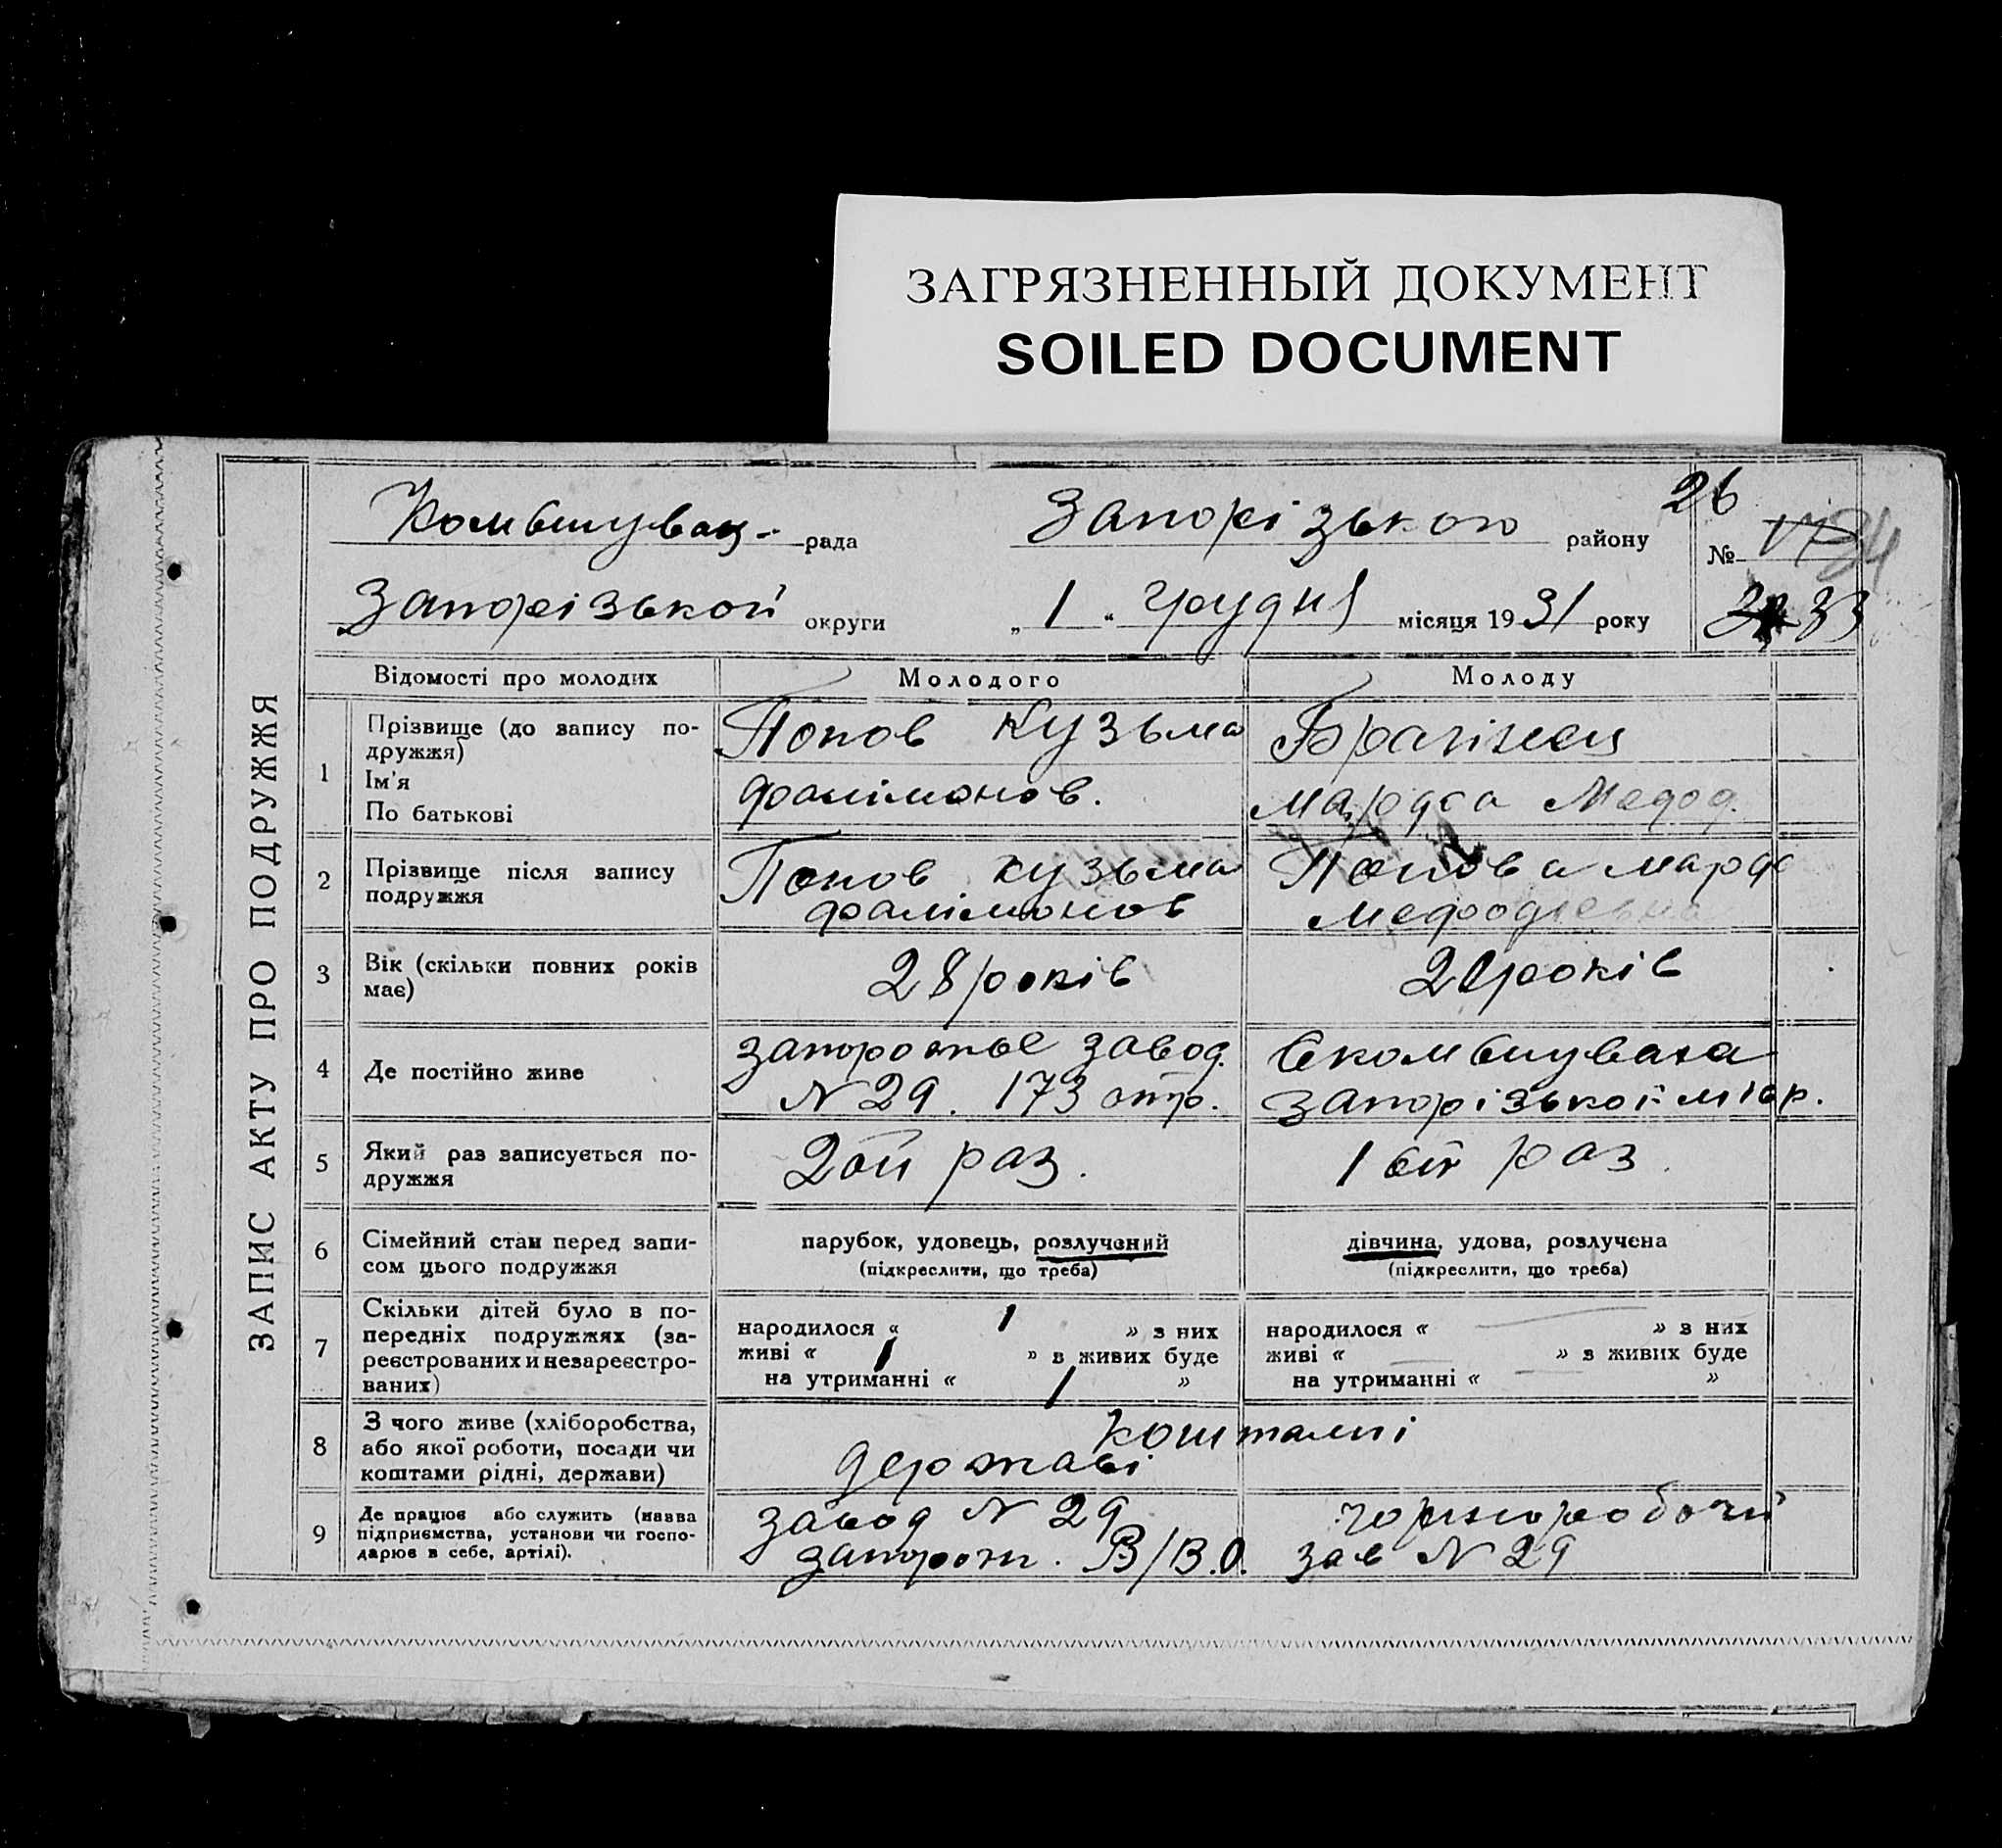 ЗАГРЯЗНЕННЫЙ ДОКУМЕНТ
SOILED DOCUMENT
ЗАПИС АКТУ ПРО ПОДРУЖЖЯ
26
Комышувах- рада Запорізького району №
Запорізькой округи „ 1 “ грудня місяця 1931 року 33
Відомості про молодих Молодого Молоду
1 Прізвище (до запису по- Попов Кузьма
дружжя)
Ім'я
По батькові фалімонов. Марфа Мефод.
2 Прізвище після запису Попов Кузьма Попова Марфа
подружжя фалімонов Мефодіевна
3 Вік (скільки повних років 28 років років
має)
4 Де постійно живе запорожье завод. С комышуваха
N 29. 173 отр. запорізької міськр.
5 Який раз записується по- 2ой раз. 1 ый раз.
дружжя
6 Сімейний стан перед запи- парубок, удовець, розлучений дівчина, удова, розлучена
сом цього подружжя (підкреслити, що треба) (підкреслити, що треба)
7 Скільки дітей було в по-
передніх подружжях (за-
реєстрованих и незареєстро-
ваних)
народилося « 1 » з них народилося « — » з них
живі « 1 » в живих буде живі « — » з живих буде
на утриманні « 1 » на утриманні « — »
8 З чого живе (хліборобства, коштамі
або якої роботи, посади чи державі
коштами рідні, держави)
9 Де працює або служить (назва завод N 29 чорноробочи
підприємства, установи чи госпо- запорож. В/В.О. зав N 29
дарює в себе, артілі).